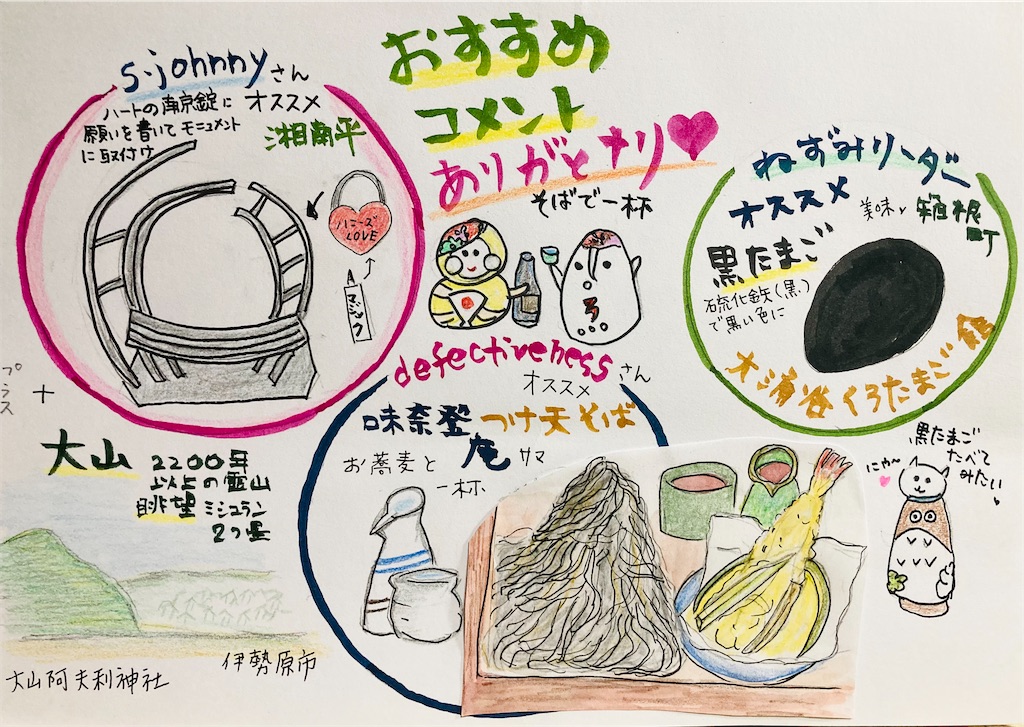 おすすめ
コメント
ありがとナリ
s.johnnyさん
ハートの南京錠に
願いを書いてモニュメント
に取付け
オススメ
湘南平
ハニーズ
LOVE
マジック
プラス
+
大山
2200年
以上の霊山
眺望ミシュラン
2つ星
伊勢原市
大山阿夫利神社
そばで一杯
defectivenessさん
オススメ
味奈登庵
つけ天そば
お蕎麦と
一杯
ねずみリーダー
オススメ
美味い
箱根町
黒たまご
硫化鉄(黒)
で黒い色に
大涌谷くろたまご館
黒たまご
たべて
みたい
にゃ〜